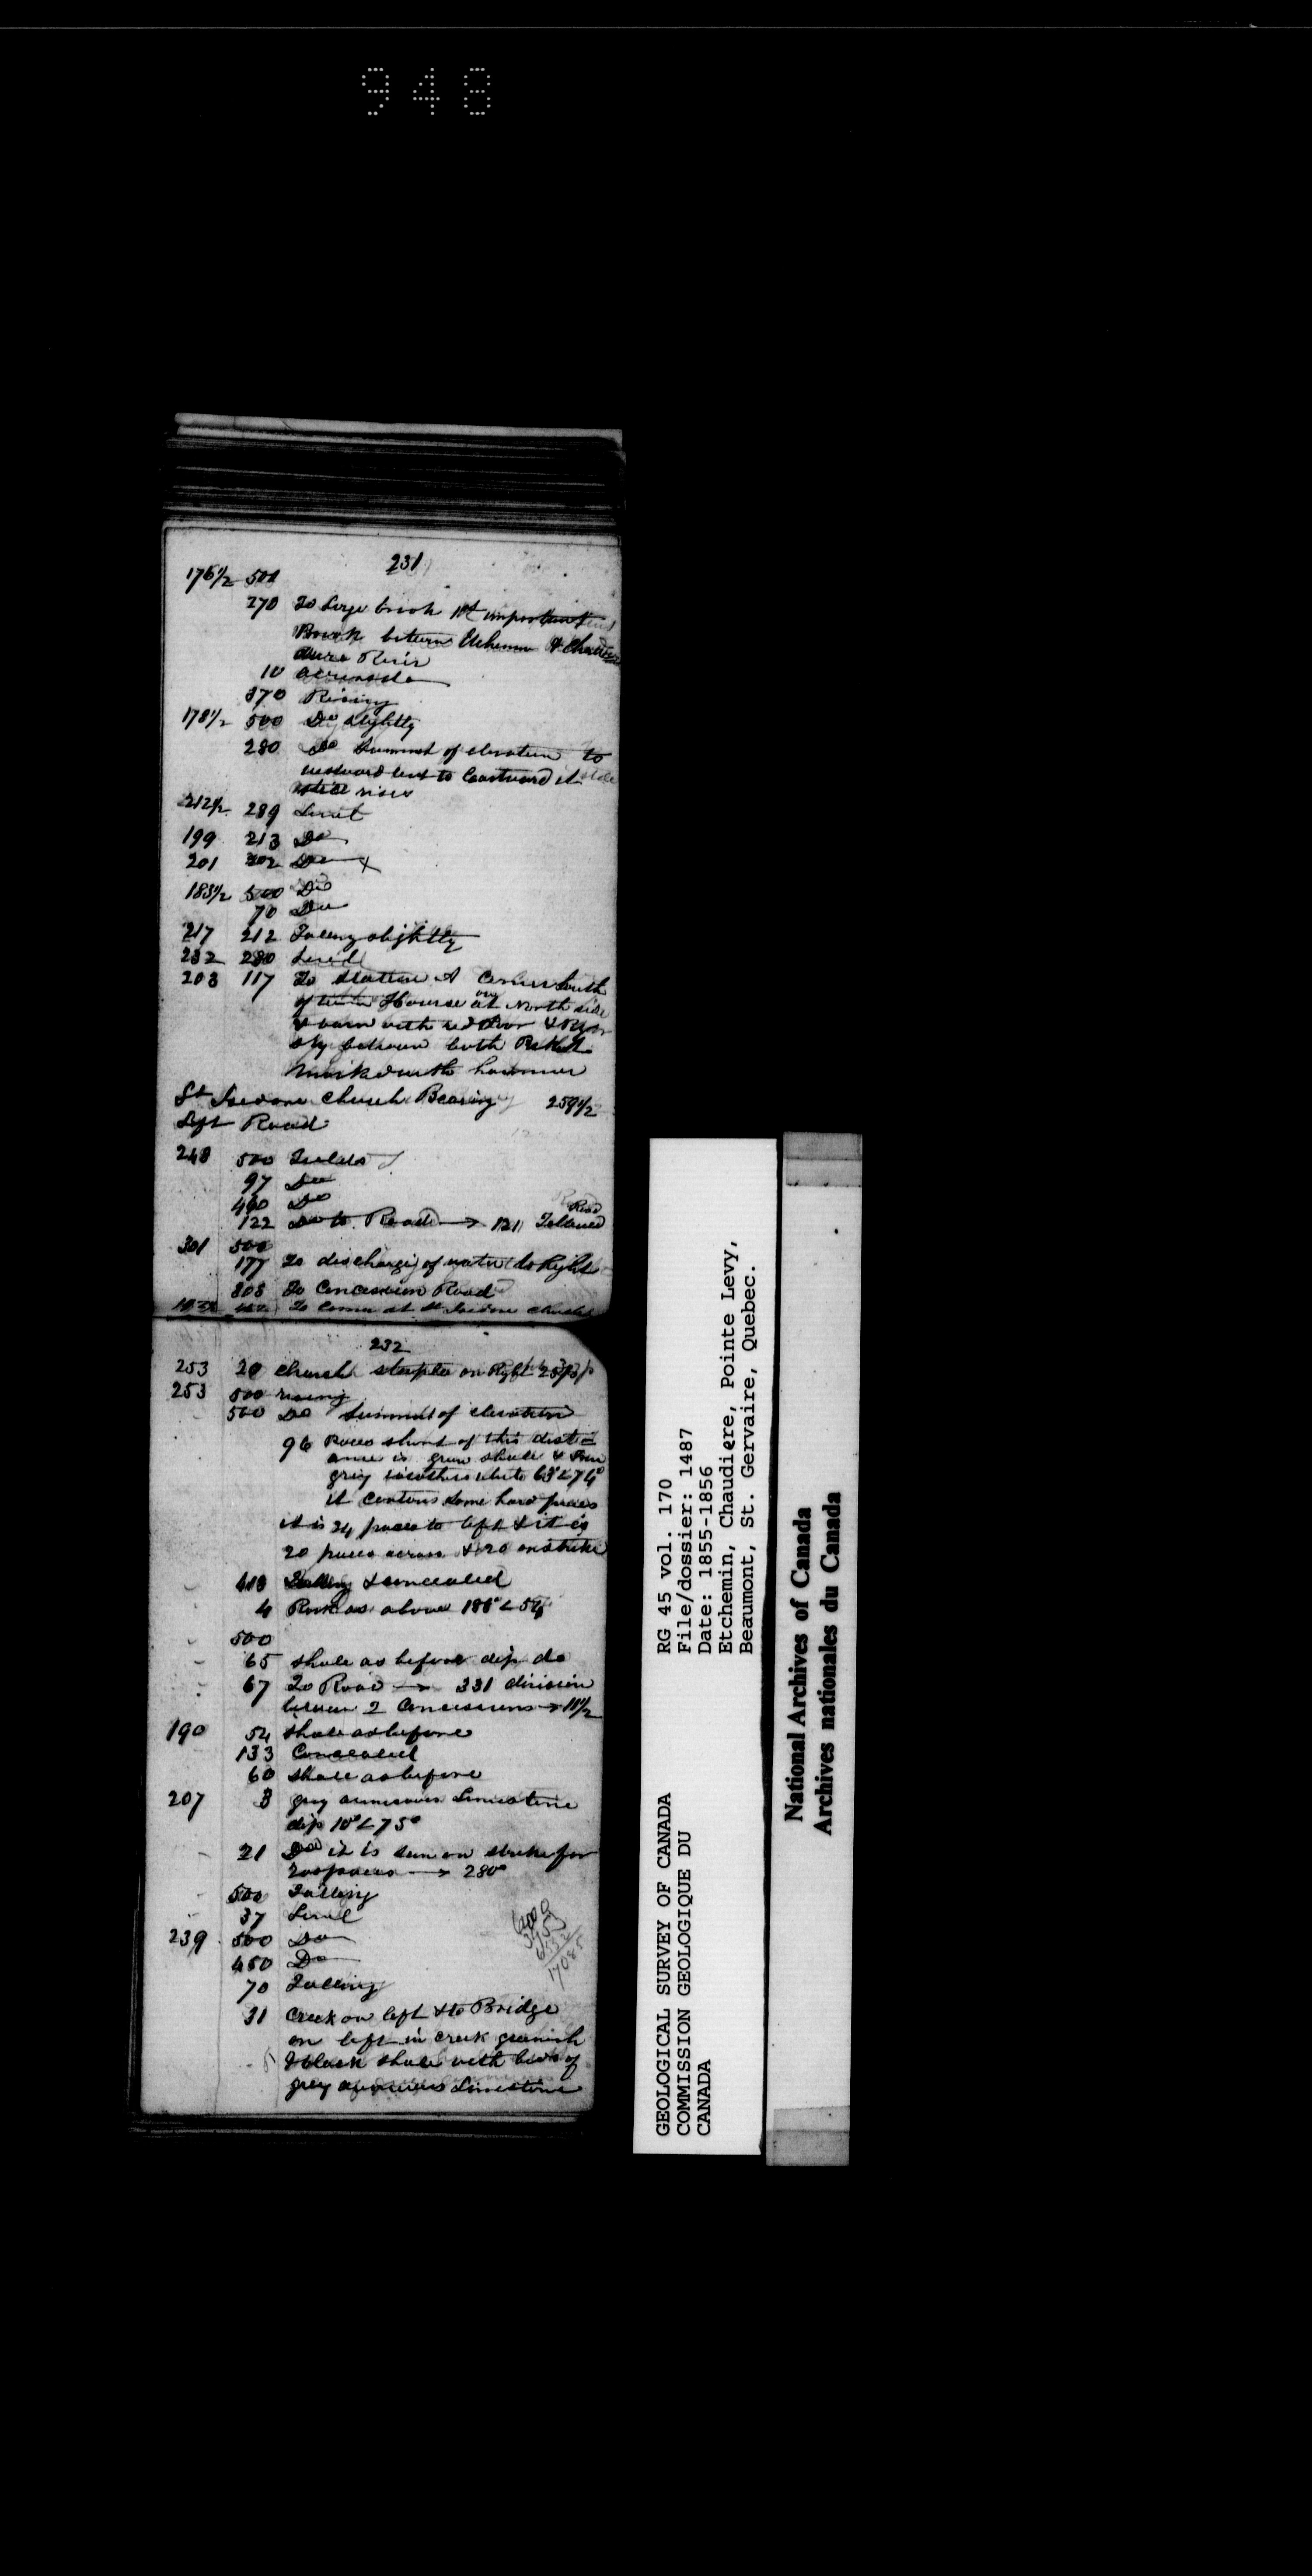 948
231
176 1/2 500
270 To large brook 1st important
Brook between Etchemin & Chau
diere River
10 across do
370 Rising
178 1/2 500 Do slightly
280 Do Summit of elevation to
westward but to Eastward it
still rises
212 1/2 289 Level
199 213 Do
201 302 Do
183 1/2 500 Do
70 Do
217 212 Falling slightly
232 280 Level
203 117 To Station A Corner South
of House on North side
& barn with red door &
between both Picket
Marked with hammer
St Isedore Church Bearing 259 1/2
Left Road
248 500 Fields
97 Do
460 Do
122 Do to Road → 121 Followed Road
301 500
177 To discharge of water to Right
808 To Concession Road
To Corner at St Isidore Church
232
253 20 Church steeple on Right
253 500 rising
500 Do Summit of elevation
96 Paces short of this dist-
ance is green shale & some
grey 63° < 74°
it contains some hard pieces
it is 24 paces to left & it is
20 paces across & 20 on strike
410 Falling & concealed
4 Rock as above 188° < 54
500
65 shale as before dip do
67 To Road → 331 division
between 2 Concessions → 11 1/2
190 54 shale as before
133 Concealed
60 shale as before
207 3 grey arenaceous Limestone
dip 10° < 75°
21 Do it is seen on strike for
200 paces → 280°
500 Falling
37 Level
239 500 Do
450 Do
70 Falling
31 Creek on left & to Bridge
on left in creek greenish
& black shale with beds of
grey arenaceous Limestone
GEOLOGICAL SURVEY OF CANADA
COMMISSION GEOLOGIQUE DU
CANADA
RG 45 vol. 170
File/dossier: 1487
Date: 1855-1856
Etchemin, Chaudiere, Pointe Levy,
Beaumont, St. Gervaire, Quebec.
National Archives of Canada
Archives nationales du Canada